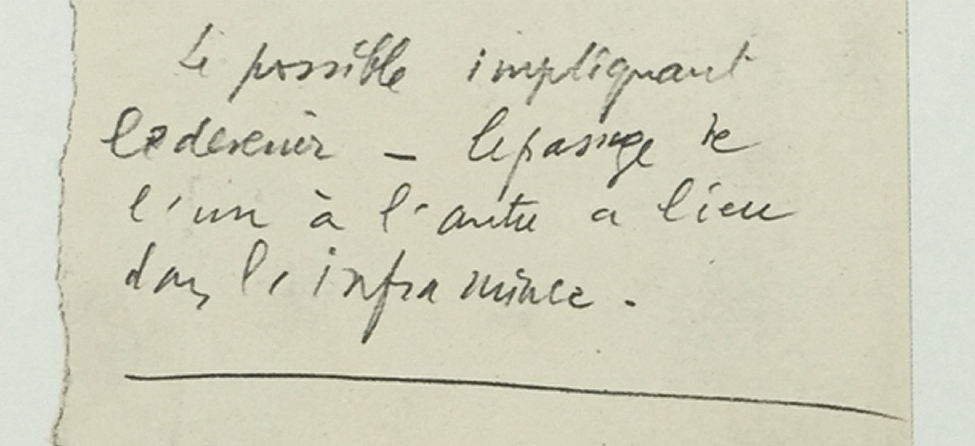 Le possible impliquant
le devenir – le passage de
l'un à l'autre a lieu
dans l'infra mince.